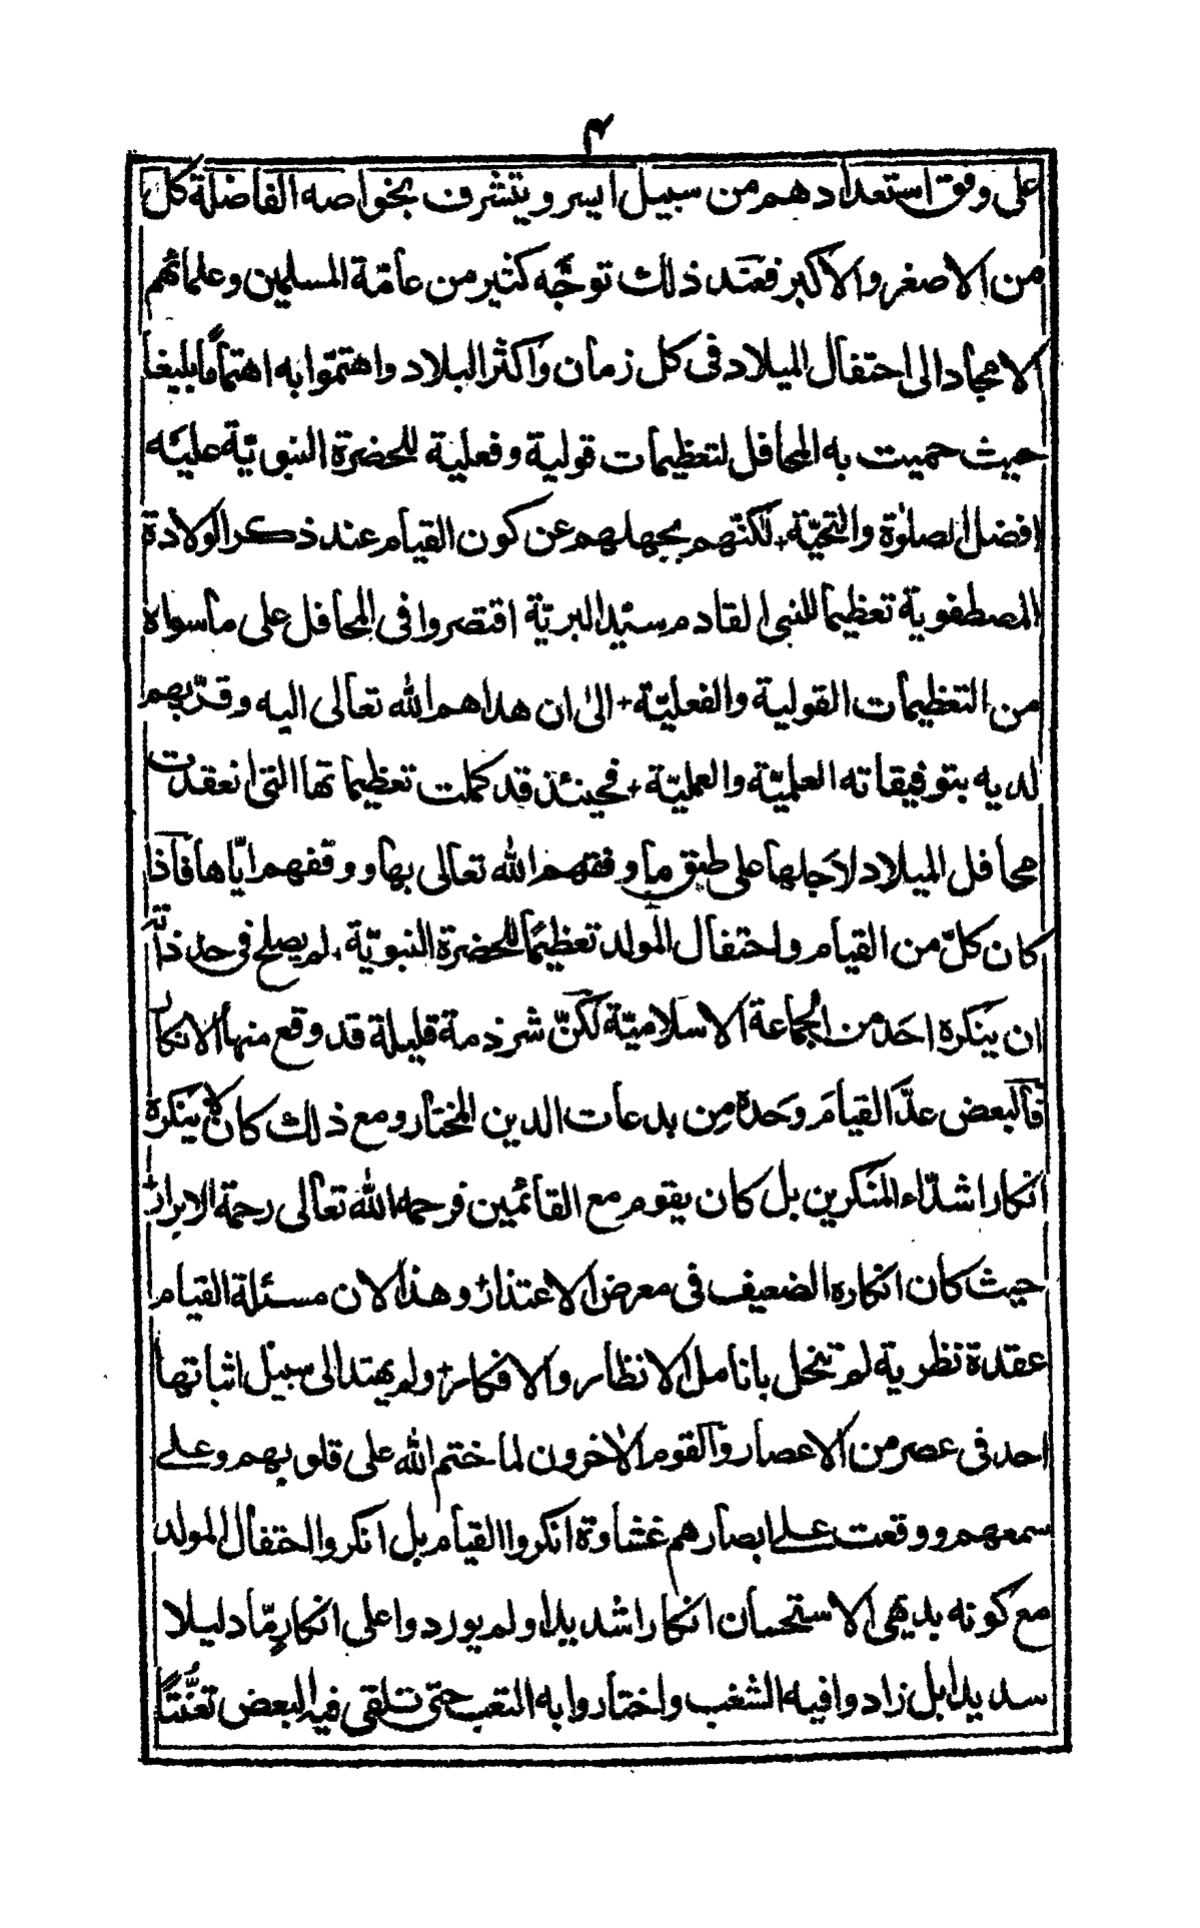 ٤
على وفق استعدادهم من سبيل ايسر ويتشرف بخواصه الفاضلة كل
من الاصغر والاكبر فعند ذلك توجّه كثير من عامّة المسلمين وعلمائهم
الامجاد الى احتفال الميلاد فى كل زمان واكثر البلاد واهتمّوا به اهتماما بليغا
حيث حميت به المحافل لتعظيمات قولية وفعلية للحضرة النبويّة عليه
افضل الصلوة والتحيّة+ لكنّهم بجهلهم عن كون القيام عند ذكر الولادة
المصطفوية تعظيما للنبى القادم سيّد البريّة اقتصروا فى المحافل على ماسواه
من التعظيمات القولية والفعليّة+ الى ان هداهم الله تعالى اليه وقرّبهم
لديه بتوفيقاته العلميّة والعمليّة+ فحينئذ قد كملت تعظيماتها التى انعقدت
محافل الميلاد لاجلها على طبق ما وفقهم الله تعالى بها ووقفهم ايّاها فاذا
كان كلّ من القيام واحتفال المولد تعظيمًا للحضرة النبويّة، لم يصلح فى حد ذاته
ان ينكره احد من الجماعة الاسلاميّة لكنّ شرذمة قليلة قد وقع منها الانكار
فالبعض عدّ القيامَ وحدهٗ مِن بدعات الدين المختار ومع ذلك كان لا ينكره
انكارا شدّاء المنكرين بل كان يقوم مع القائمين فرحمه الله تعالى رحمة الابرار
حيث كان انكاره الضعيف فى معرض الاعتذار+ وهذا لان مسئلة القيام
عقدة نظرية لم تنحل بانامل الانظار والافكار+ ولم يهتد الى سبيل اثباتها
احد فى عصر من الاعصار والقوم الاخرون لما ختم الله على قلوبهم وعلى
سمعهم ووقعت على ابصارهم غشاوة انكروا القيام بل انكروا احتفال المولد
مع كونه بديهى الاستحسان انكارا شديدا ولم يوردوا على انكارٍ مّا دليلا
سديدا بل زادوا فيه الشغب واختاروا به التعب حتى تلقى فيه البعض تعنّتا